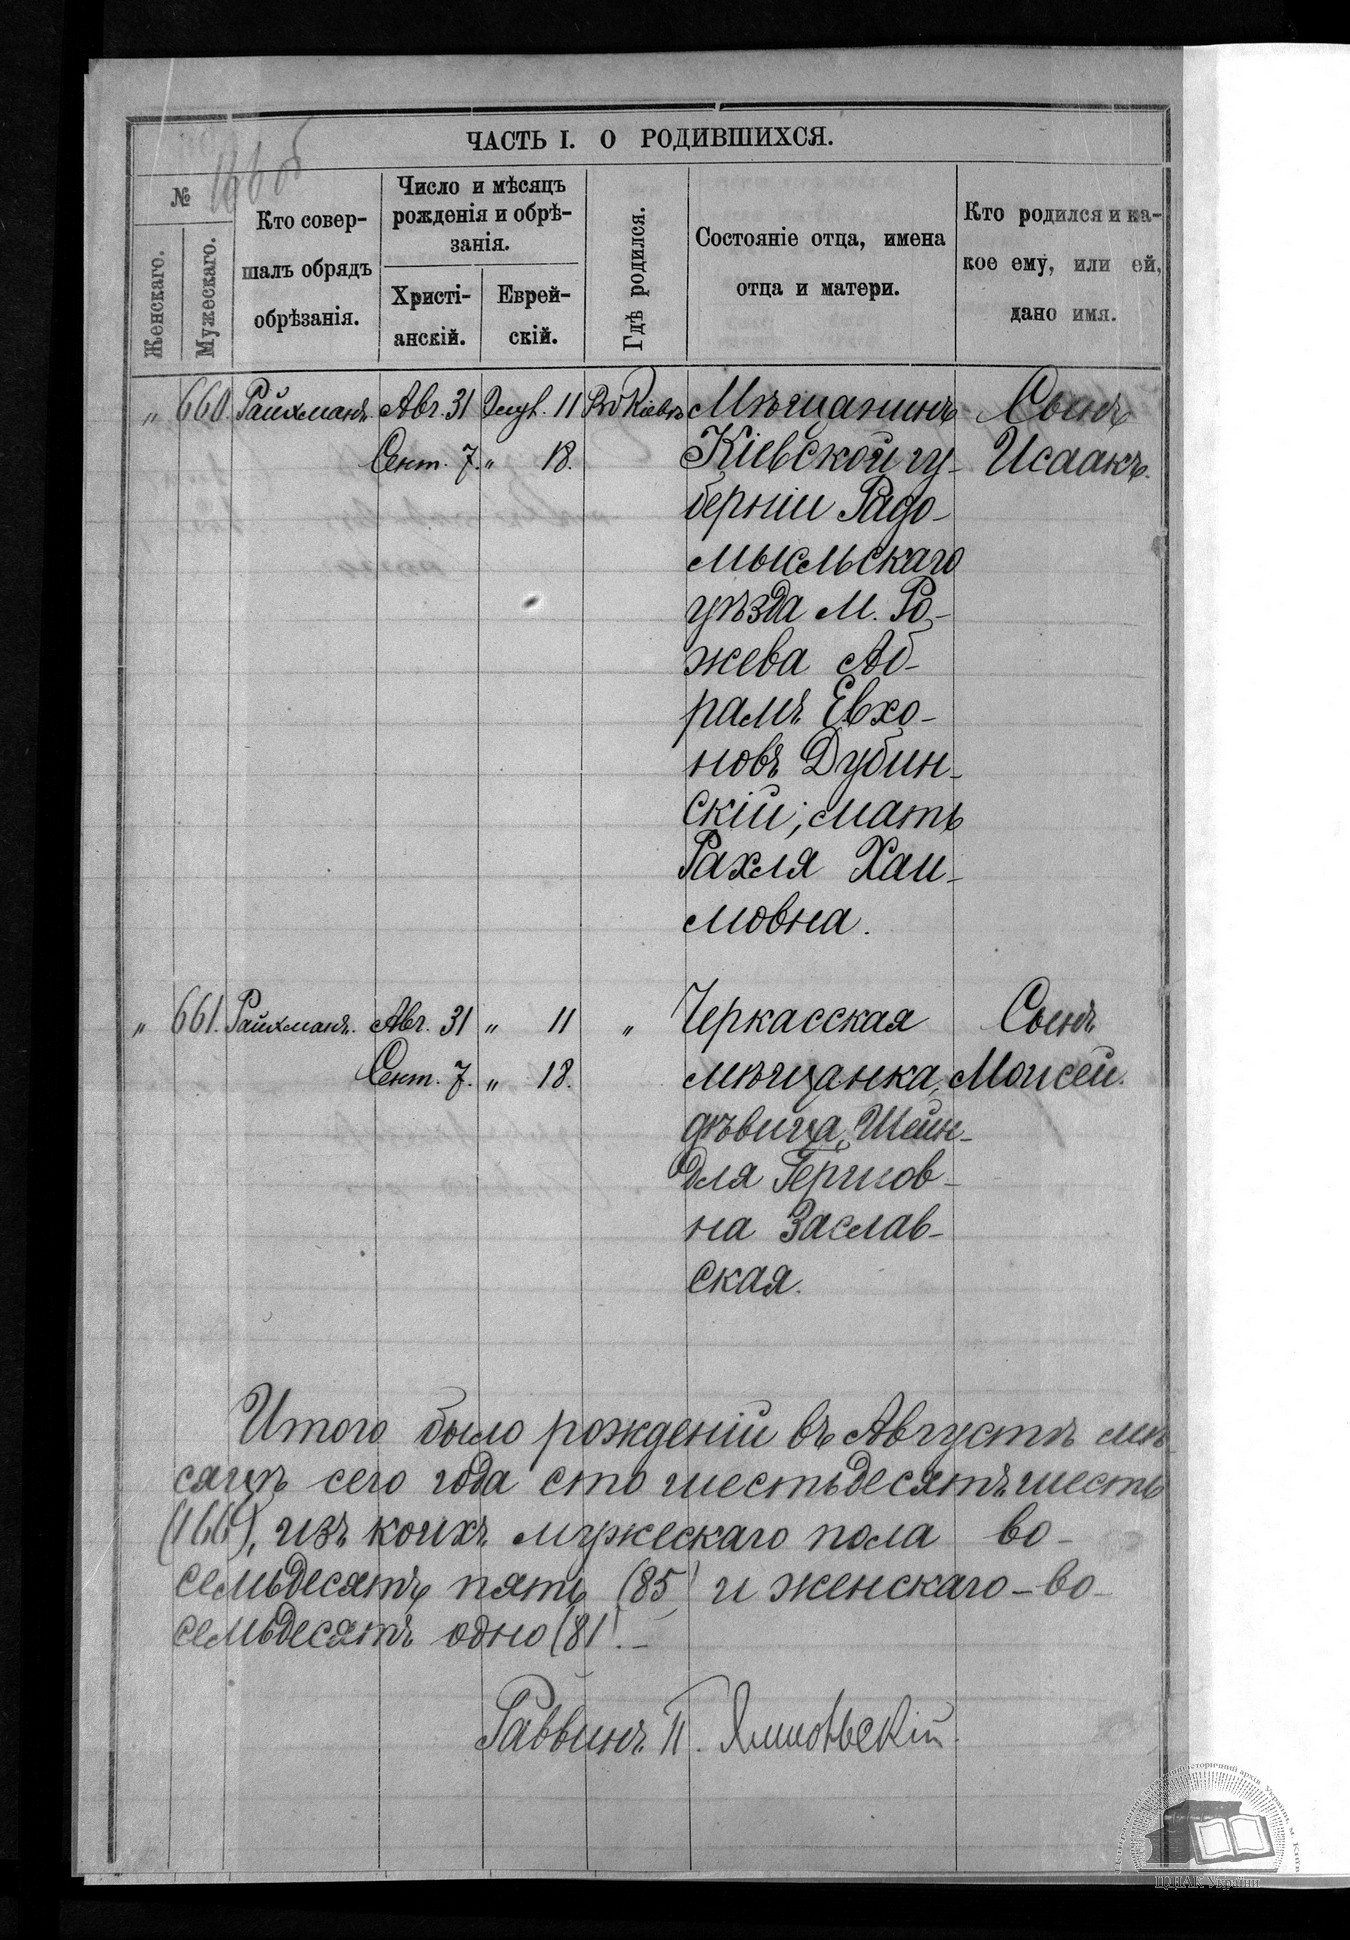 166 об
ЧАСТЬ I. О РОДИВШИХСЯ.
№
Женскаго.
Мужескаго.
Кто совер-
шалъ обрядъ
обрѣзанія.
Число и мѣсяцъ
рожденія и обрѣ-
занія.
Христі-
анскій.
Еврей-
скій.
Гдѣ родился.
Состояніе отца, имена
отца и матери.
Кто родился и ка-
кое ему, или ей,
дано имя.
„ 660. Райхманъ. Авг. 31 Элул. 11 Въ Кіевѣ Мѣщанинъ Сынъ
Сент. 7. „ 18. Кіевской гу- Исаакъ.
берніи Радо-
мысльскаго
уѣзда м. Ро-
жева Аб-
рамъ Евхо-
новъ Дубин-
скій; мать
Рахля Хаи-
мовна.
„ 661. Райхманъ. Авг. 31 „ 11 „ Черкасская Сынъ
Сент. 7. „ 18. мѣщанка, Моисей.
дѣвица, Шейн-
для Гершов-
на Заслав-
ская.
Итого было рожденій въ Августѣ мѣ-
сяцѣ сего года сто шестьдесятъ шесть
(166), изъ коихъ мужескаго пола во-
семьдесятъ пять (85) и женскаго - во-
семьдесятъ одно (81). -
Раввинъ П. Ямпольскій.
ЦДІАК України